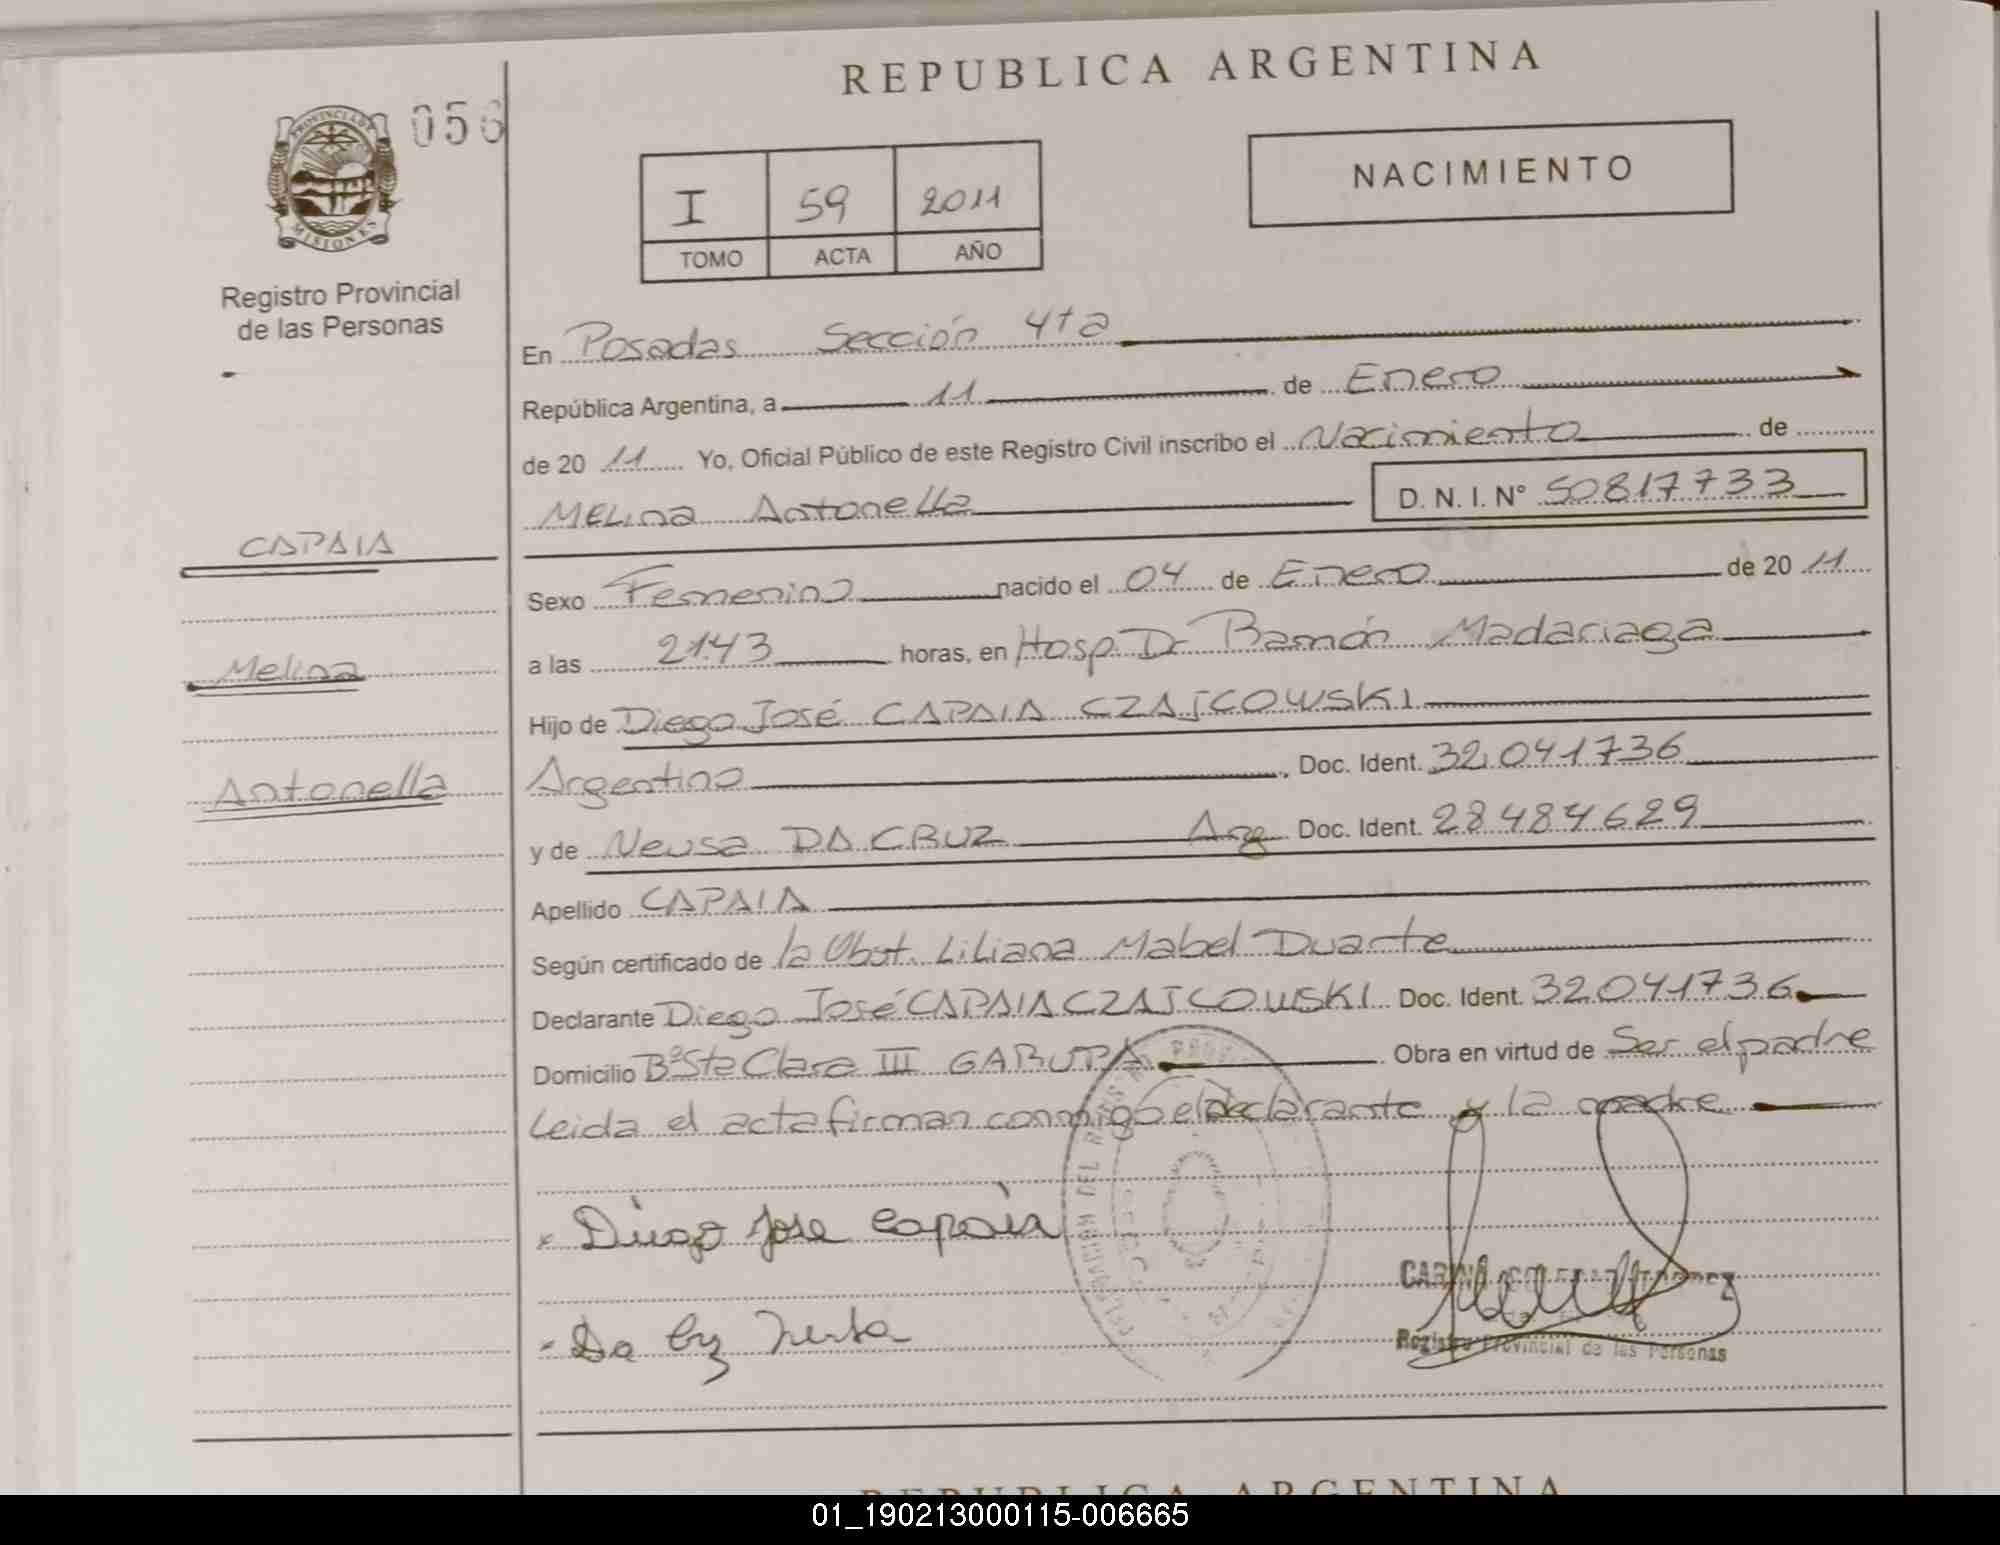 REPUBLICA ARGENTINA
056
PROVINCIA DE
MISIONES
Registro Provincial
de las Personas
NACIMIENTO
I 59 2011
TOMO ACTA AÑO
En Posadas Sección 4ta
República Argentina, a 11 de Enero
de 20 11 Yo, Oficial Público de este Registro Civil inscribo el Nacimiento de
MELINA Antonella D. N. I. N° 50817733
CAPAIA
Melina
Antonella
Sexo Femenino nacido el 04 de Enero de 20 11
a las 21.43 horas, en Hosp. Dr Ramón Madariaga
Hijo de Diego José CAPAIA CZAJCOWSKI
Argentino Doc. Ident. 32.041736
y de Neusa DA CRUZ Arg Doc. Ident. 28484629
Apellido CAPAIA
Según certificado de la Obst. Liliana Mabel Duarte
Declarante Diego José CAPAIA CZAJCOWSKI Doc. Ident. 32041736
Domicilio B° Sta Clara III GARUPA Obra en virtud de Ser el padre
Leida el acta firman conmigo el declarante y la madre
Diego Jose Capaia
Registro Provincial de las Personas
REPUBLICA ARGENTINA
01_190213000115-006665